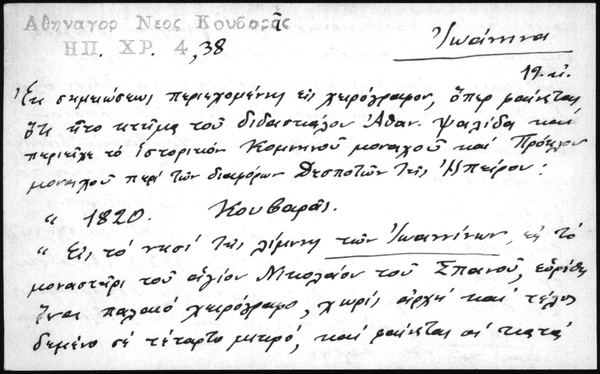 Ἀθηναγορ Νεος Κουβορᾶς
ΗΠ. ΧΡ. 4, 38
Ἰωάννινα
19. αἰ.
Ἐκ σημειώσεως περιεχομένης εἰς χειρόγραφον, ὅπερ φαίνεται
ὅτι ἦτο κτῆμα τοῦ διδασκάλου Ἀθαν. Ψαλίδα καὶ
περιεῖχε τὸ ἱστορικὸν Κομνηνοῦ μοναχοῦ καὶ Πρόκλου
μοναχοῦ περὶ τῶν διαφόρων Δεσποτῶν τῆς Ἠπείρου:
" 1820. Κουβαρᾶς.
" Εἰς τὸ νησὶ τῆς λίμνης τῶν Ἰωαννίνων, εἰς τὸ
μοναστήρι τοῦ ἁγίου Νικολάου τοῦ Σπανοῦ, εὑρέθη
ἕνας παλαιὸ χειρόγραφο, χωρὶς ἀρχὴ καὶ τέλος
δεμένο σὲ τέταρτο μικρό, καὶ φαίνεται οἱ κατὰ